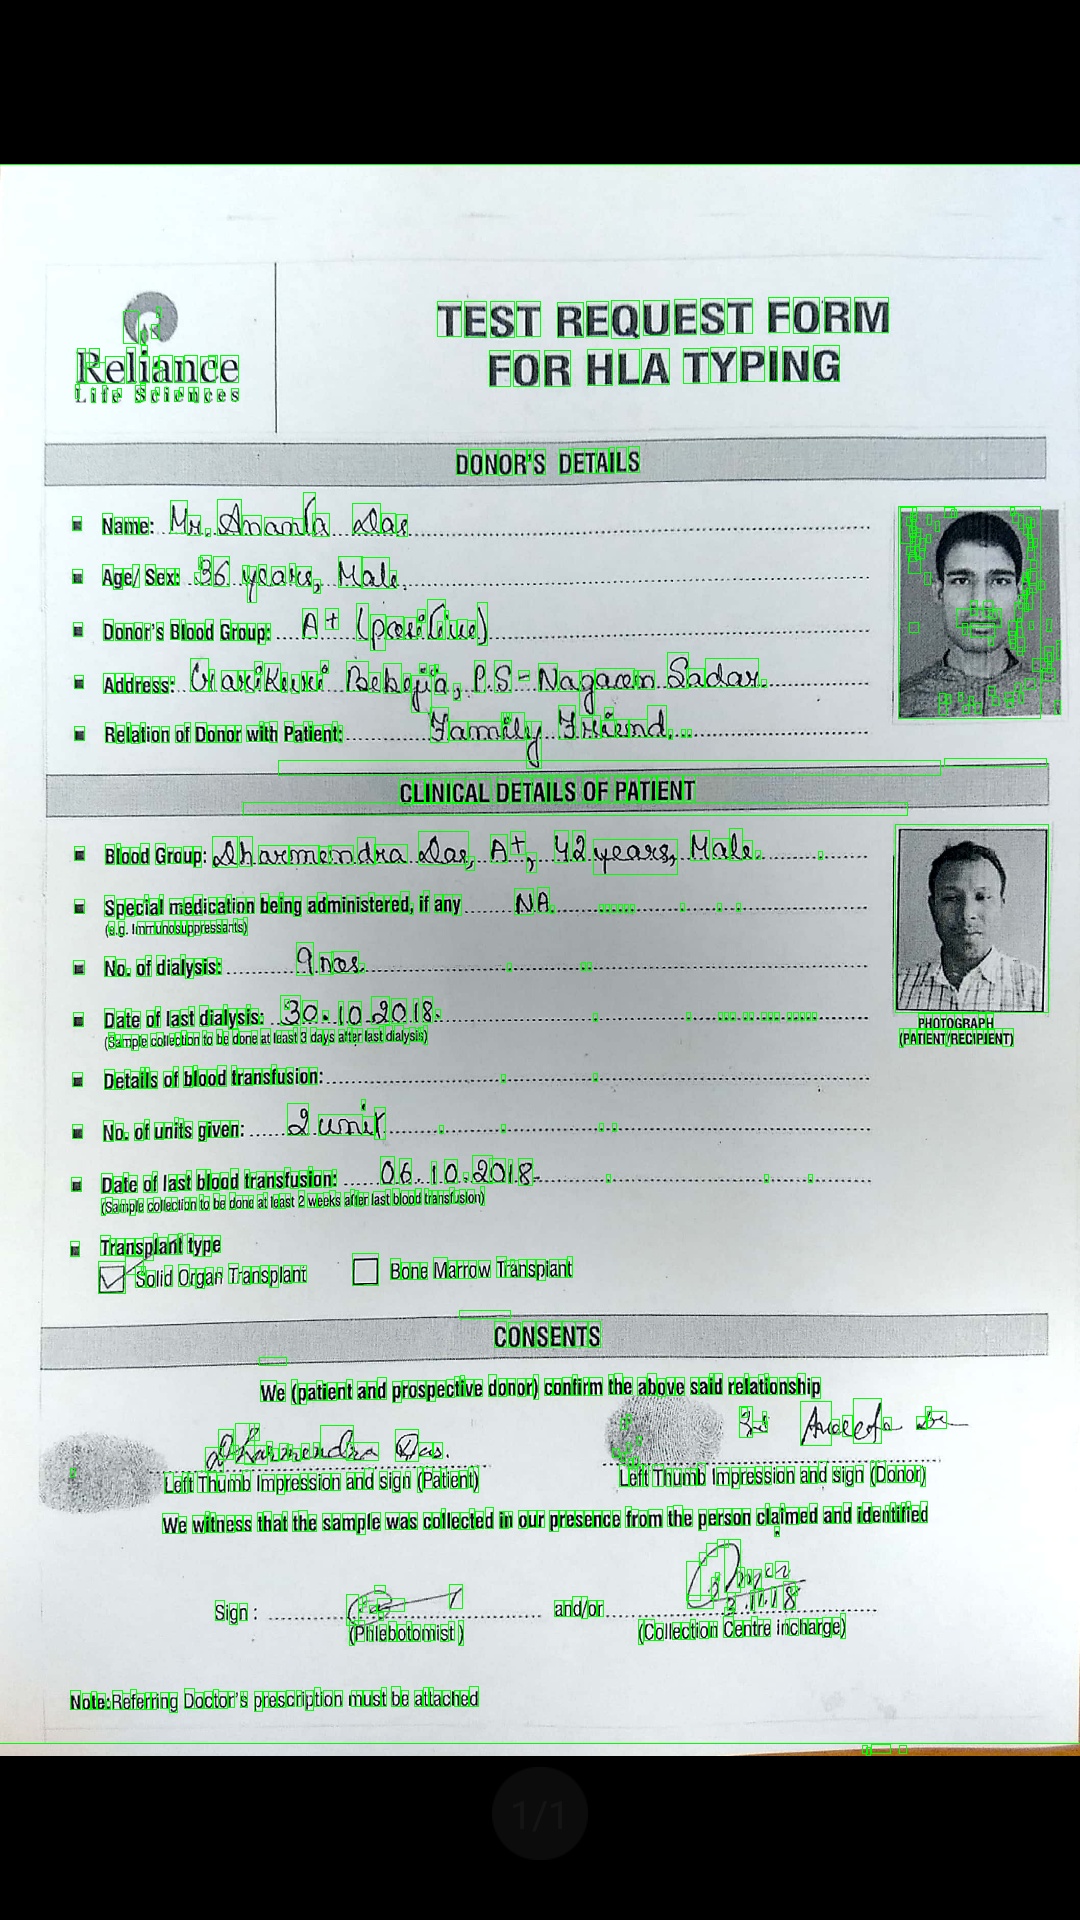 Reliance
Life Sciences
TEST REQUEST FORM
FOR HLA TYPING
DONOR'S DETAILS
Name: Mr. Ananta Das
Age/ Sex: 36 years, Male.
Donor's Blood Group: A+ (positive)
Address: Bebejia, P.S - Nagaon Sadar.
Relation of Donor with Patient: Family Friend.
CLINICAL DETAILS OF PATIENT
Blood Group: Dharmendra Das, A+, 42 years, Male.
Special medication being administered, if any NA.
(e.g. Immunosuppressants)
No. of dialysis: 9 nos.
Date of last dialysis: 30.10.2018.
(Sample collection to be done at least 3 days after last dialysis)
PHOTOGRAPH
(PATIENT/RECIPIENT)
Details of blood transfusion:
No. of units given: 2 unit
Date of last blood transfusion: 06.10.2018.
(Sample collection to be done at least 2 weeks after last blood transfusion)
Transplant type
Solid Organ Transplant Bone Marrow Transplant
CONSENTS
We (patient and prospective donor) confirm the above said relationship
Dharmendra Das.
Left Thumb Impression and sign (Patient) Left Thumb Impression and sign (Donor)
We witness that the sample was collected in our presence from the person claimed and identified
3.11.18
Sign : and/or
(Phlebotomist ) (Collection Centre incharge)
Note: Referring Doctor's prescription must be attached
1/1